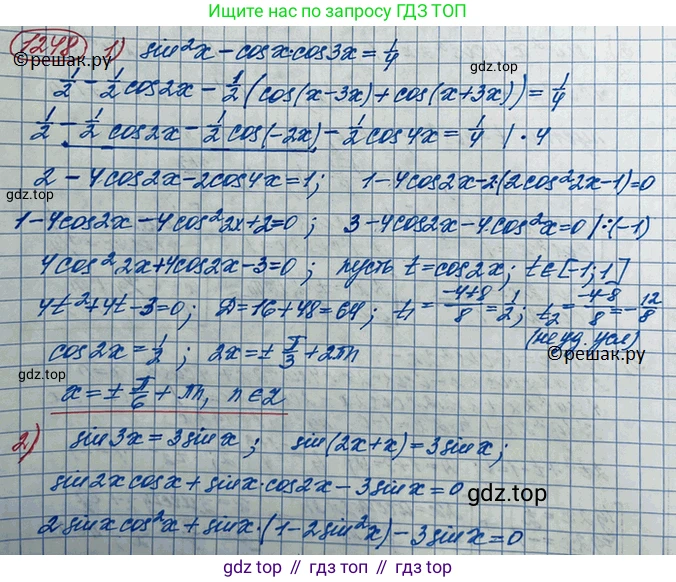 Ищите ответы по запросу ГДЗ ТОП
1248 1) sin²x - cosx·cos3x = 1/4
©reшак.ру
gdz.top
1/2 - 1/2 cos2x - 1/2 (cos(x-3x) + cos(x+3x)) = 1/4
1/2 - 1/2 cos2x - 1/2 cos(-2x) - 1/2 cos4x = 1/4 | · 4
2 - 4cos2x - 2cos4x = 1; 1 - 4cos2x - 2·(2cos²2x - 1) = 0
gdz.top
1 - 4cos2x - 4cos²2x + 2 = 0; 3 - 4cos2x - 4·cos²x = 0 | : (-1)
4cos²2x + 4cos2x - 3 = 0; пусть t = cos2x; t ∈ [-1; 1]
4t² + 4t - 3 = 0; D = 16 + 48 = 64; t₁ = (-4+8)/8 = 1/2; t₂ = (-4-8)/8 = -12/8
(не уд. усл)
cos2x = 1/2; 2x = ± π/3 + 2πn
©reшак.ру
gdz.top
x = ± π/6 + πn, n ∈ Z
2) sin3x = 3sinx; sin(2x+x) = 3sinx;
sin2x cosx + sinx·cos2x - 3sinx = 0
gdz.top
2sinx cos²x + sinx·(1 - 2sin²x) - 3sinx = 0
gdz.top // gdz.top // gdz.top // gdz.top